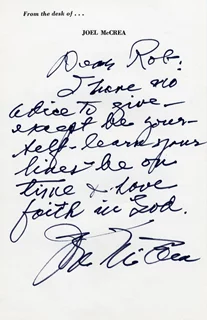 From the desk of . . .
JOEL McCREA
Dear Rob:
I have no
advice to give—
except be your-
self-learn your
lines-be on
time & have
faith in God.
Joel McCrea